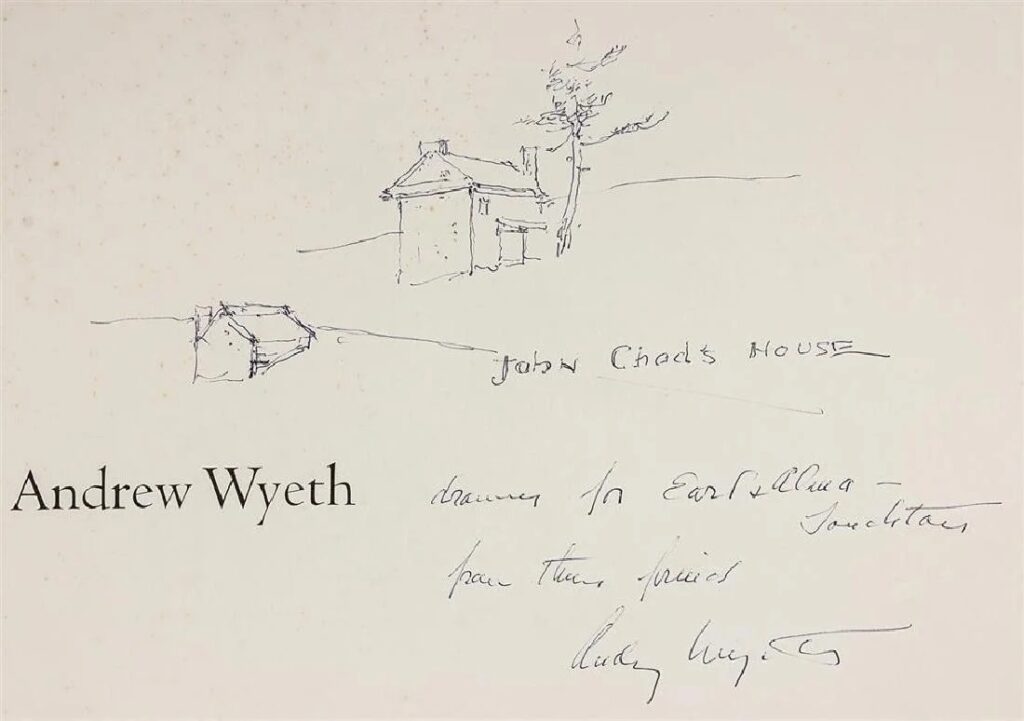 John Chad's HOUSE
Andrew Wyeth
drawn for Earl & Alma —
from their friend
Andy Wyeth